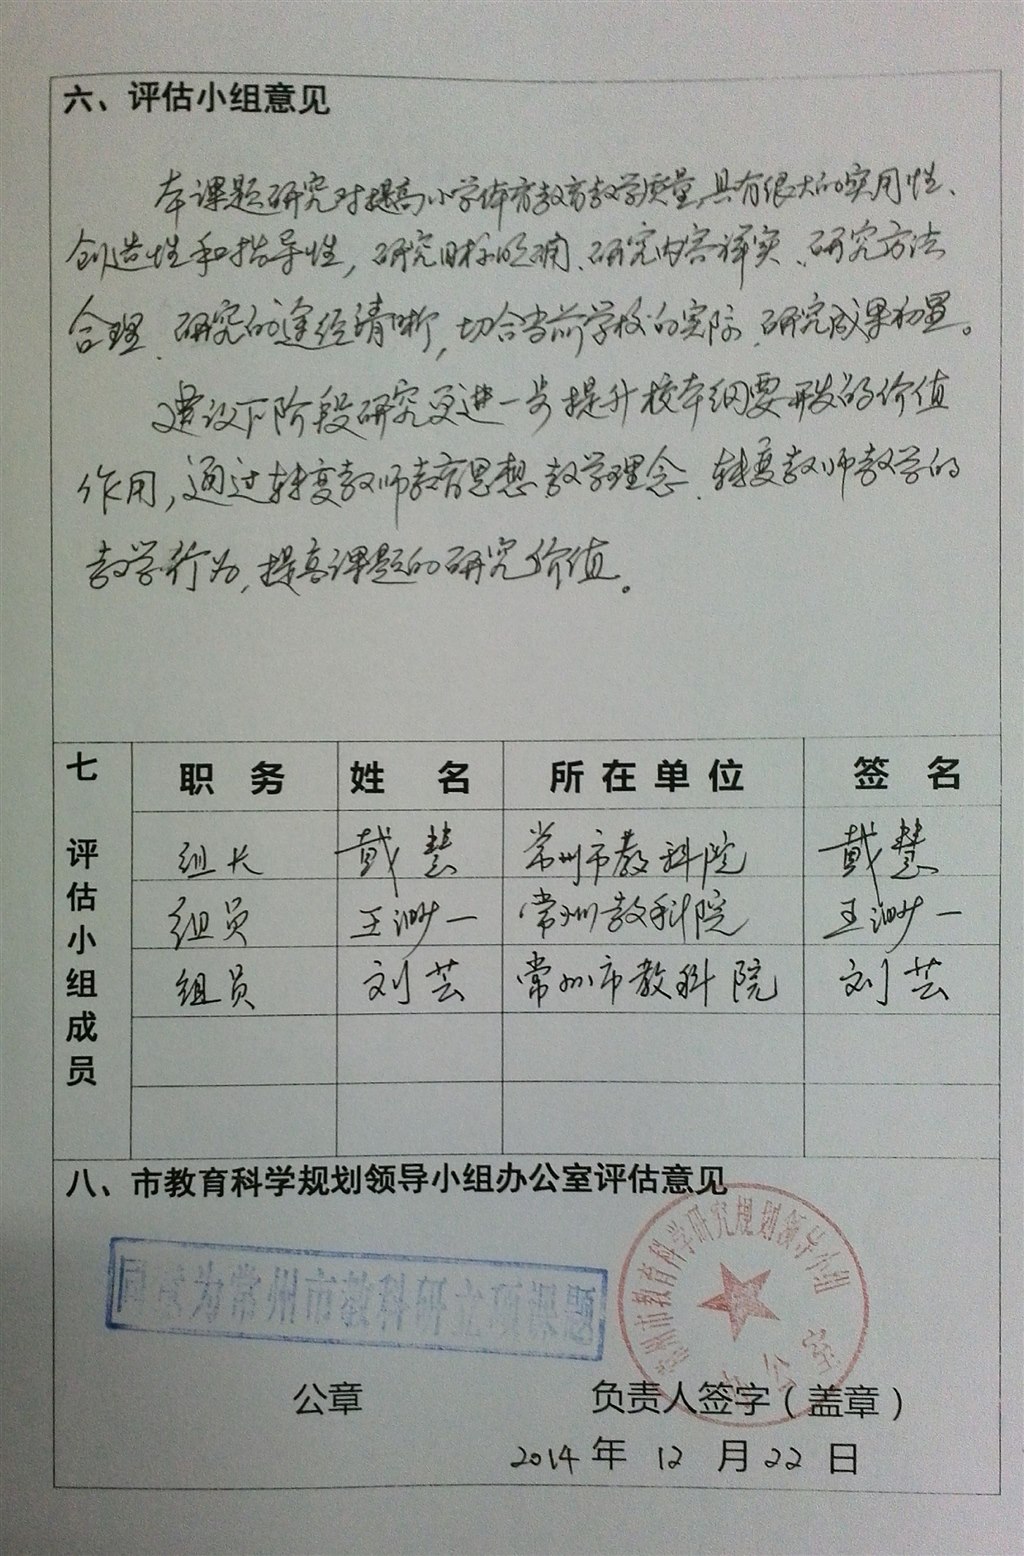 六、评估小组意见
本课题研究对提高小学体育教育教学质量,具有很大的实用性、
创造性和指导性,研究目标明确、研究内容详实、研究方法
合理、研究的途径清晰,切合当前学校的实际、研究成果初显。
建议下阶段研究更进一步提升校本纲要开发的价值
作用,通过转变教师教育思想、教学理念、转变教师教学的
教学行为,提高课题的研究价值。
七 评估小组成员
职务 姓名 所在单位 签名
组长 戴慧 常州市教科院 戴慧
组员 王渺一 常州教科院 王渺一
组员 刘芸 常州市教科院 刘芸
八、市教育科学规划领导小组办公室评估意见
同意为常州市教科研立项课题
常州市教育科学研究规划领导小组
办公室
公章 负责人签字(盖章)
2014年12月22日